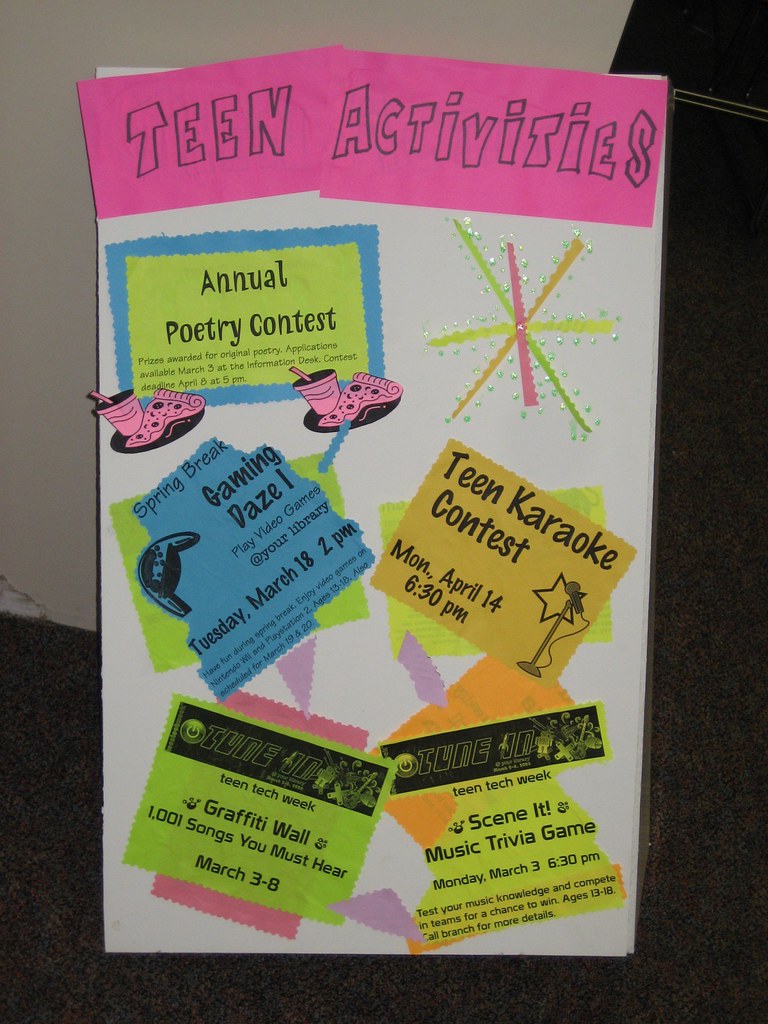 TEEN ACTiViTiES
Annual
Poetry Contest
Prizes awarded for original poetry. Applications
available March 3 at the Information Desk. Contest
deadline April 8 at 5 pm.
Spring Break
Gaming
Daze !
Play Video Games
@your library
Tuesday, March 18 2 pm
Have fun during spring break. Enjoy video games on
Nintendo Wii and Playstation 2. Ages 13-18. Also
scheduled for March 19 & 20.
Teen Karaoke
Contest
Mon., April 14
6:30 pm
TUNE IN
@ your library
teen tech week
Graffiti Wall
1,001 Songs You Must Hear
March 3-8
TUNE IN
@ your library
teen tech week
Scene It!
Music Trivia Game
Monday, March 3 6:30 pm
Test your music knowledge and compete
in teams for a chance to win. Ages 13-18.
Call branch for more details.